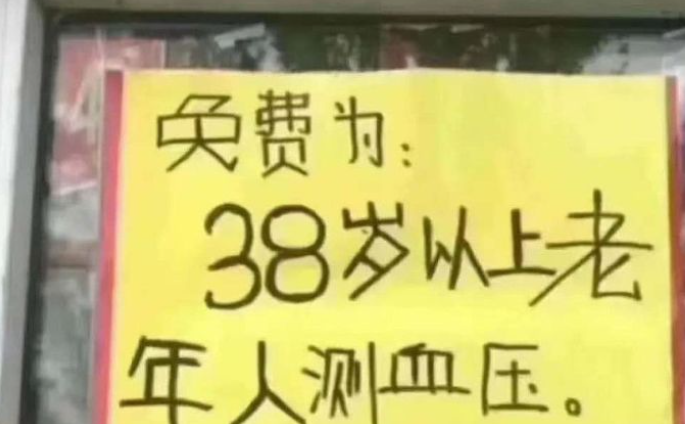 免费为:
38岁以上老
年人测血压。